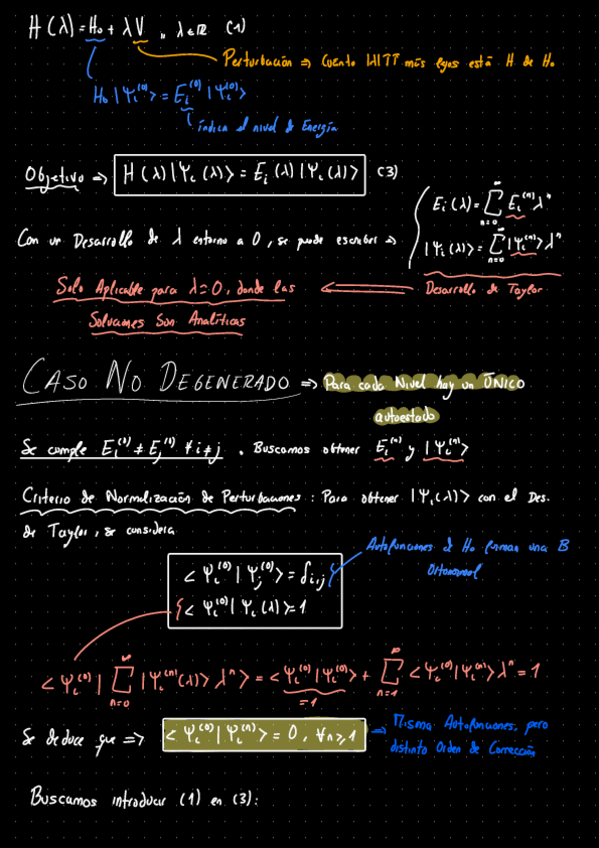 H(λ) = H₀ + λV , λ ∈ ℝ (1)
Perturbación ⇒ Cuanto más lejos está H de H₀
H₀ |Ψᵢ⁽⁰⁾⟩ = Eᵢ⁽⁰⁾ |Ψᵢ⁽⁰⁾⟩
indica el nivel de Energía
Objetivo ⇒ H(λ)|Ψᵢ(λ)⟩ = Eᵢ(λ)|Ψᵢ(λ)⟩ (3)
Eᵢ(λ) = ∑_{n=0}^{∞} Eᵢ⁽ⁿ⁾ λⁿ
Con un Desarrollo de λ entorno a 0, se puede escribir ⇒ |Ψᵢ(λ)⟩ = ∑_{n=0}^{∞} |Ψᵢ⁽ⁿ⁾⟩ λⁿ
Solo Aplicable para λ=0, donde las ⇐ Desarrollo de Taylor
Soluciones Son Analíticas
CASO NO DEGENERADO ⇒ Para cada Nivel hay un ÚNICO
autoestado
Se cumple Eᵢ⁽⁰⁾ ≠ Eⱼ⁽⁰⁾ ∀ i≠j . Buscamos obtener Eᵢ⁽ⁿ⁾ y |Ψᵢ⁽ⁿ⁾⟩
Criterio de Normalización de Perturbaciones : Para obtener |Ψᵢ(λ)⟩ con el Des.
de Taylor, se considera
Autofunciones de H₀ forman una B
Ortonormal
⟨Ψᵢ⁽⁰⁾|Ψⱼ⁽⁰⁾⟩ = δᵢ,ⱼ
⟨Ψᵢ⁽⁰⁾|Ψᵢ(λ)⟩ = 1
⟨Ψᵢ⁽⁰⁾| ∑_{n=0}^{∞} |Ψᵢ⁽ⁿ⁾(λ)⟩ λⁿ⟩ = ⟨Ψᵢ⁽⁰⁾|Ψᵢ⁽⁰⁾⟩ + ∑_{n=1}^{∞} ⟨Ψᵢ⁽⁰⁾|Ψᵢ⁽ⁿ⁾⟩ λⁿ = 1
=1
Se deduce que ⇒ ⟨Ψᵢ⁽⁰⁾|Ψᵢ⁽ⁿ⁾⟩ = 0 , ∀n≥1 ⇒ Misma Autofunciones, pero
distinto Orden de Corrección
Buscamos introducir (1) en (3):